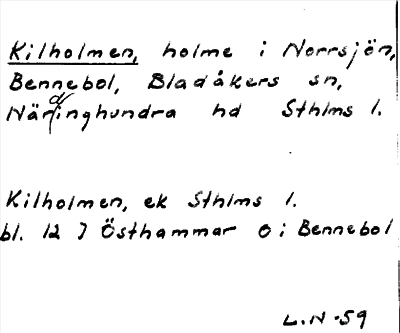 Kilholmen, holme i Norrsjön,
Bennebol, Bladåkers sn,
Närdinghundra hd Sthlms l.
Kilholmen, ek Sthlms l.
bl. 12 J Östhammar o i Bennebol
L.N -59